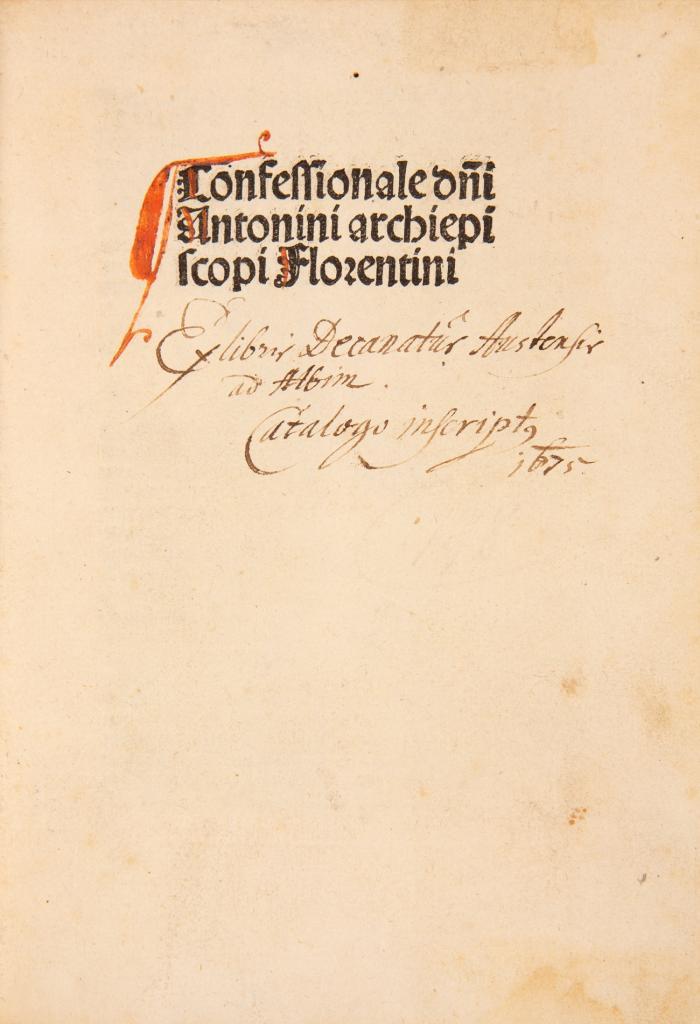 Confessionale dn̄i
Antonini archiepi
scopi Florentini
Ex libris Decanatûs Austensis
ad Albim .
Catalogo inscriptꝰ
1675